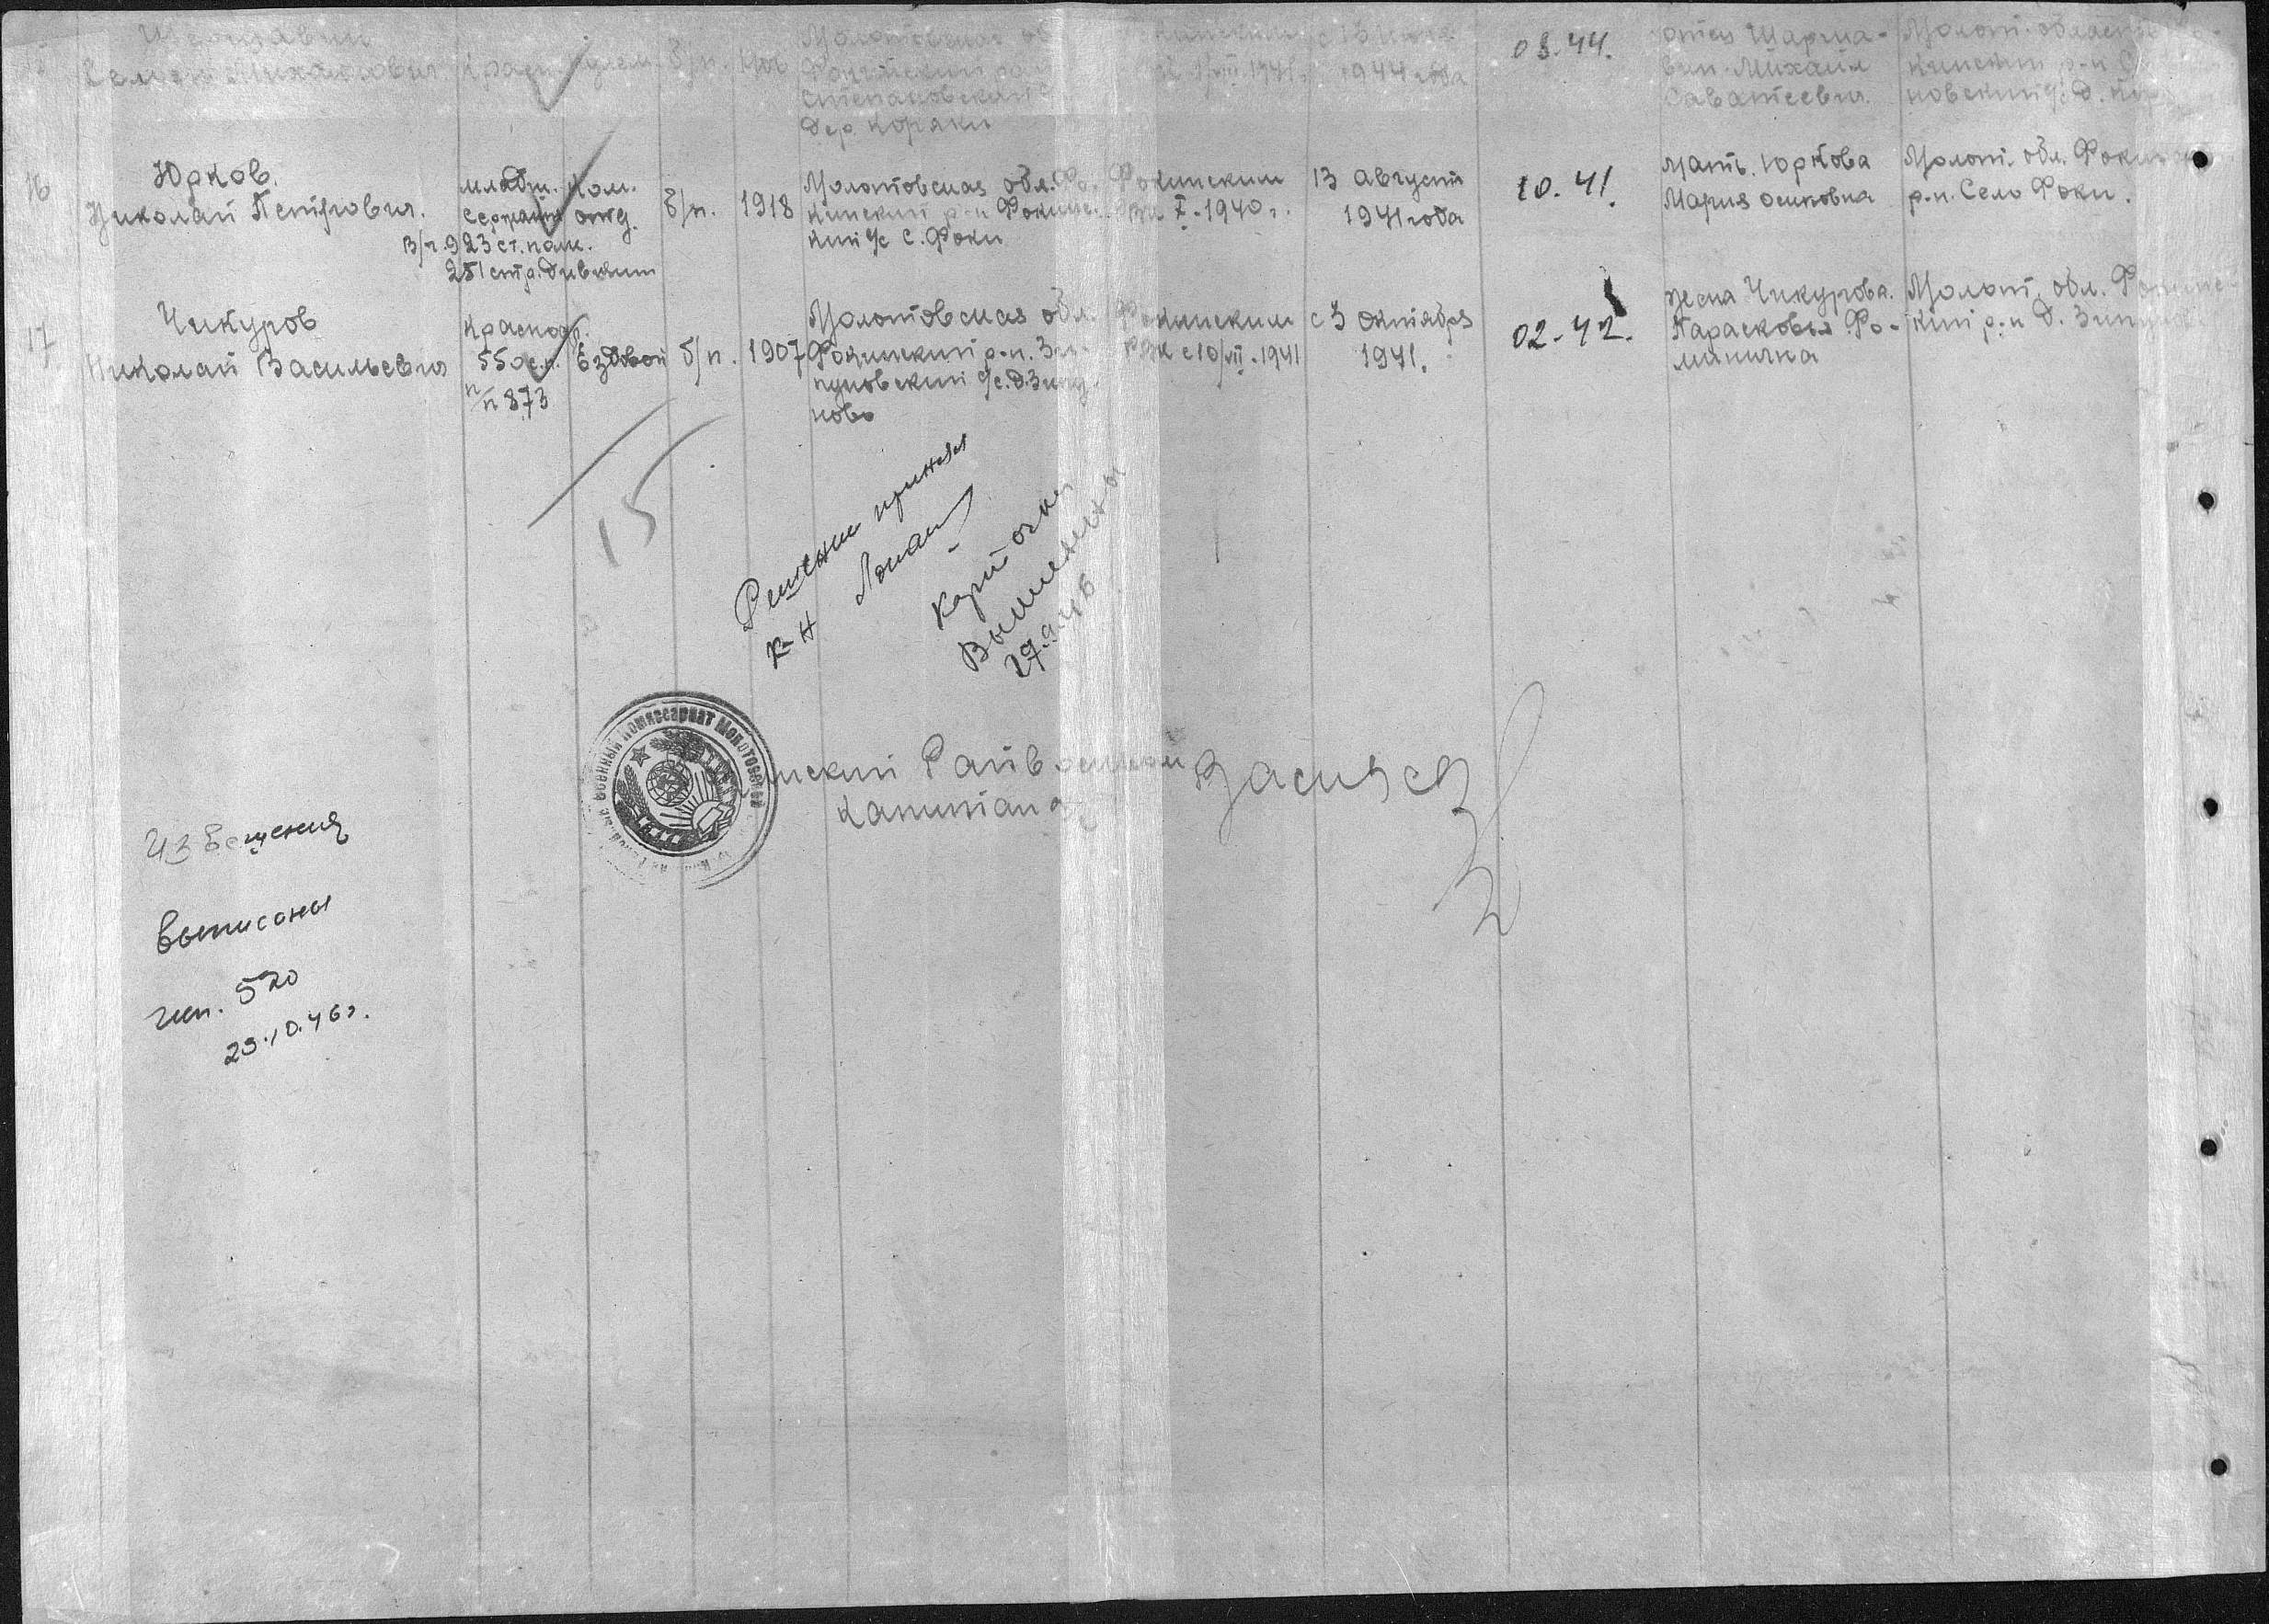 Семен Михайлович Красн. б/п.
Степановский
дер. Коряки
1944 года
08.44.
отец Шарма-
вин Михаил
Саватеевич
Молот. область
16 Юрков
Николай Петрович.
младш. сержант
Ком. отд.
в/ч. 923 ст. полк.
251 стр. дивизии
б/п. 1918
Молотовская обл. Фо-
кинский р-н Фокинс-
кий с/с с. Фоки
Фокинским
РВК X-1940 г.
13 август
1941 года
10.41.
Мать. Юркова
Мария Осиповна
Молот. обл. Фокинский
р-н. Село Фоки.
17 Чикуров
Николай Васильевич
Красноар.
550 с.п.
п/п 873
Ездовой
б/п. 1907
Молотовская обл.
Фокинский р-н. Зи-
пуновский с/с. д. Зипу-
ново
Фокинским
РВК с 10/VII-1941
с 3 октября
1941.
02-42.
жена Чикурова.
Парасковья Фо-
минична
Молот. обл. Фокинс-
кий р-н д. Зипуново
15
Решение принял
к-н
Карточки
Выписаны
27.9.46
Военный Комиссариат Молотовской
инский Райвоенком
капитан
Извещения
выписаны
исп. 520
23.10.46г.